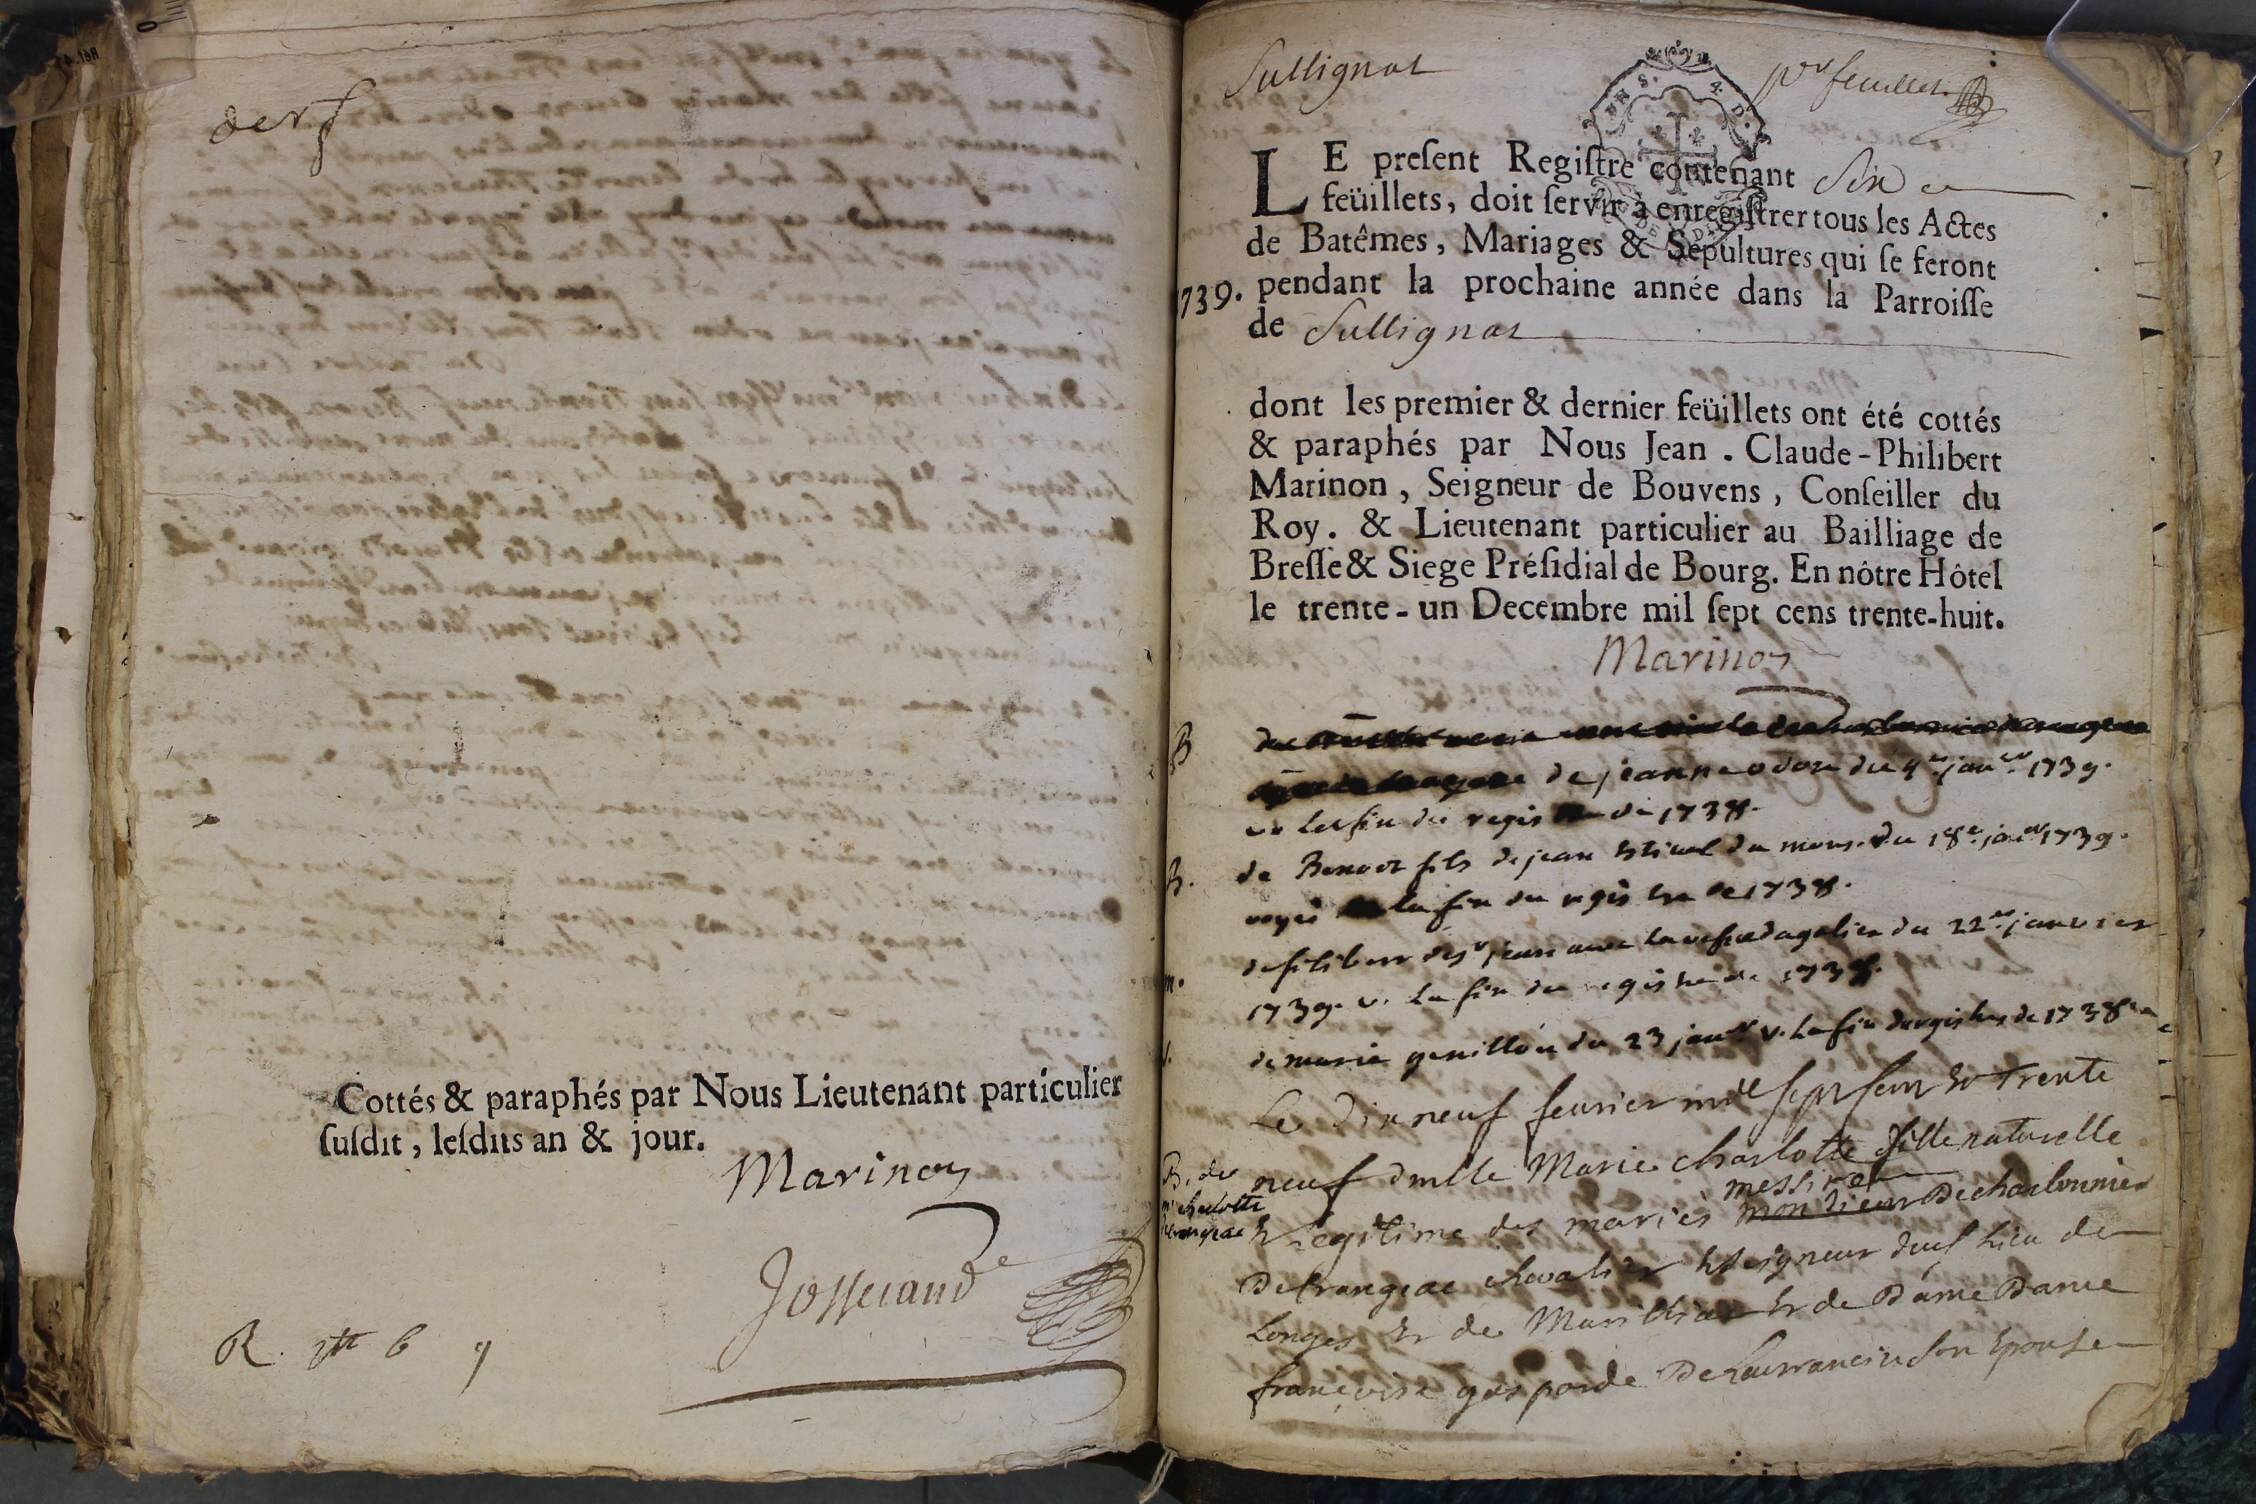 derf
Cottés & paraphés par Nous Lieutenant particulier
ſuſdit, leſdits an & jour.
Marinon
Josserand
R. 6
Sullignat
pr feuillet
GENS. 4. D.
LE preſent Regiſtre contenant Six
feüillets, doit ſervir à enregiſtrer tous les Actes
de Batêmes, Mariages & Sepultures qui ſe feront
1739. pendant la prochaine année dans la Parroiſſe
de Sullignat
dont les premier & dernier feüillets ont été cottés
& paraphés par Nous Jean. Claude-Philibert
Marinon, Seigneur de Bouvens, Conſeiller du
Roy. & Lieutenant particulier au Bailliage de
Breſſe & Siege Préſidial de Bourg. En nôtre Hôtel
le trente-un Decembre mil ſept cens trente-huit.
Marinon
B
de jeanne odon du 4e janer 1739.
v. la fin du regis de 1738.
B. de Benoit fils de jean du mons. du 18e janer 1739.
voyes la fin du regis tre de 1738.
m. de filibert jean avec du 22e janvier
1739. v. la fin du registre de 1738.
de marie genillon du 23 janer v. la fin du registre de 1738
Le dixneuf fevrier mille sept sent et trente
B. de neuf dmlle Marie charlotte fille naturelle
m. charlotte messire
et Legitime des mariés monsieur De charbonnier
De crangeac chevalier et seigneur dud lieu de
Longes et de Marilliat et de Dame Dame
françoise gasparde De son Epouse